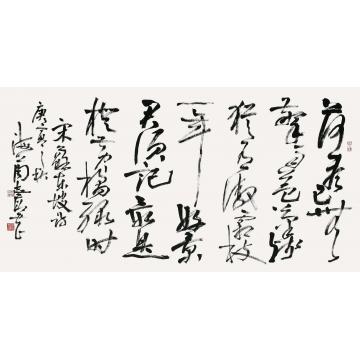 荷尽已無
擎雨蓋菊殘
犹有傲霜枝
一年好景
君须记最是
橙黄橘绿时
宋蘇东坡诗
庚寅之秋